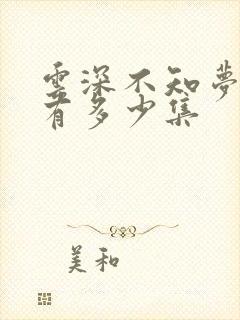 雲深不知夢
有多少集
美和